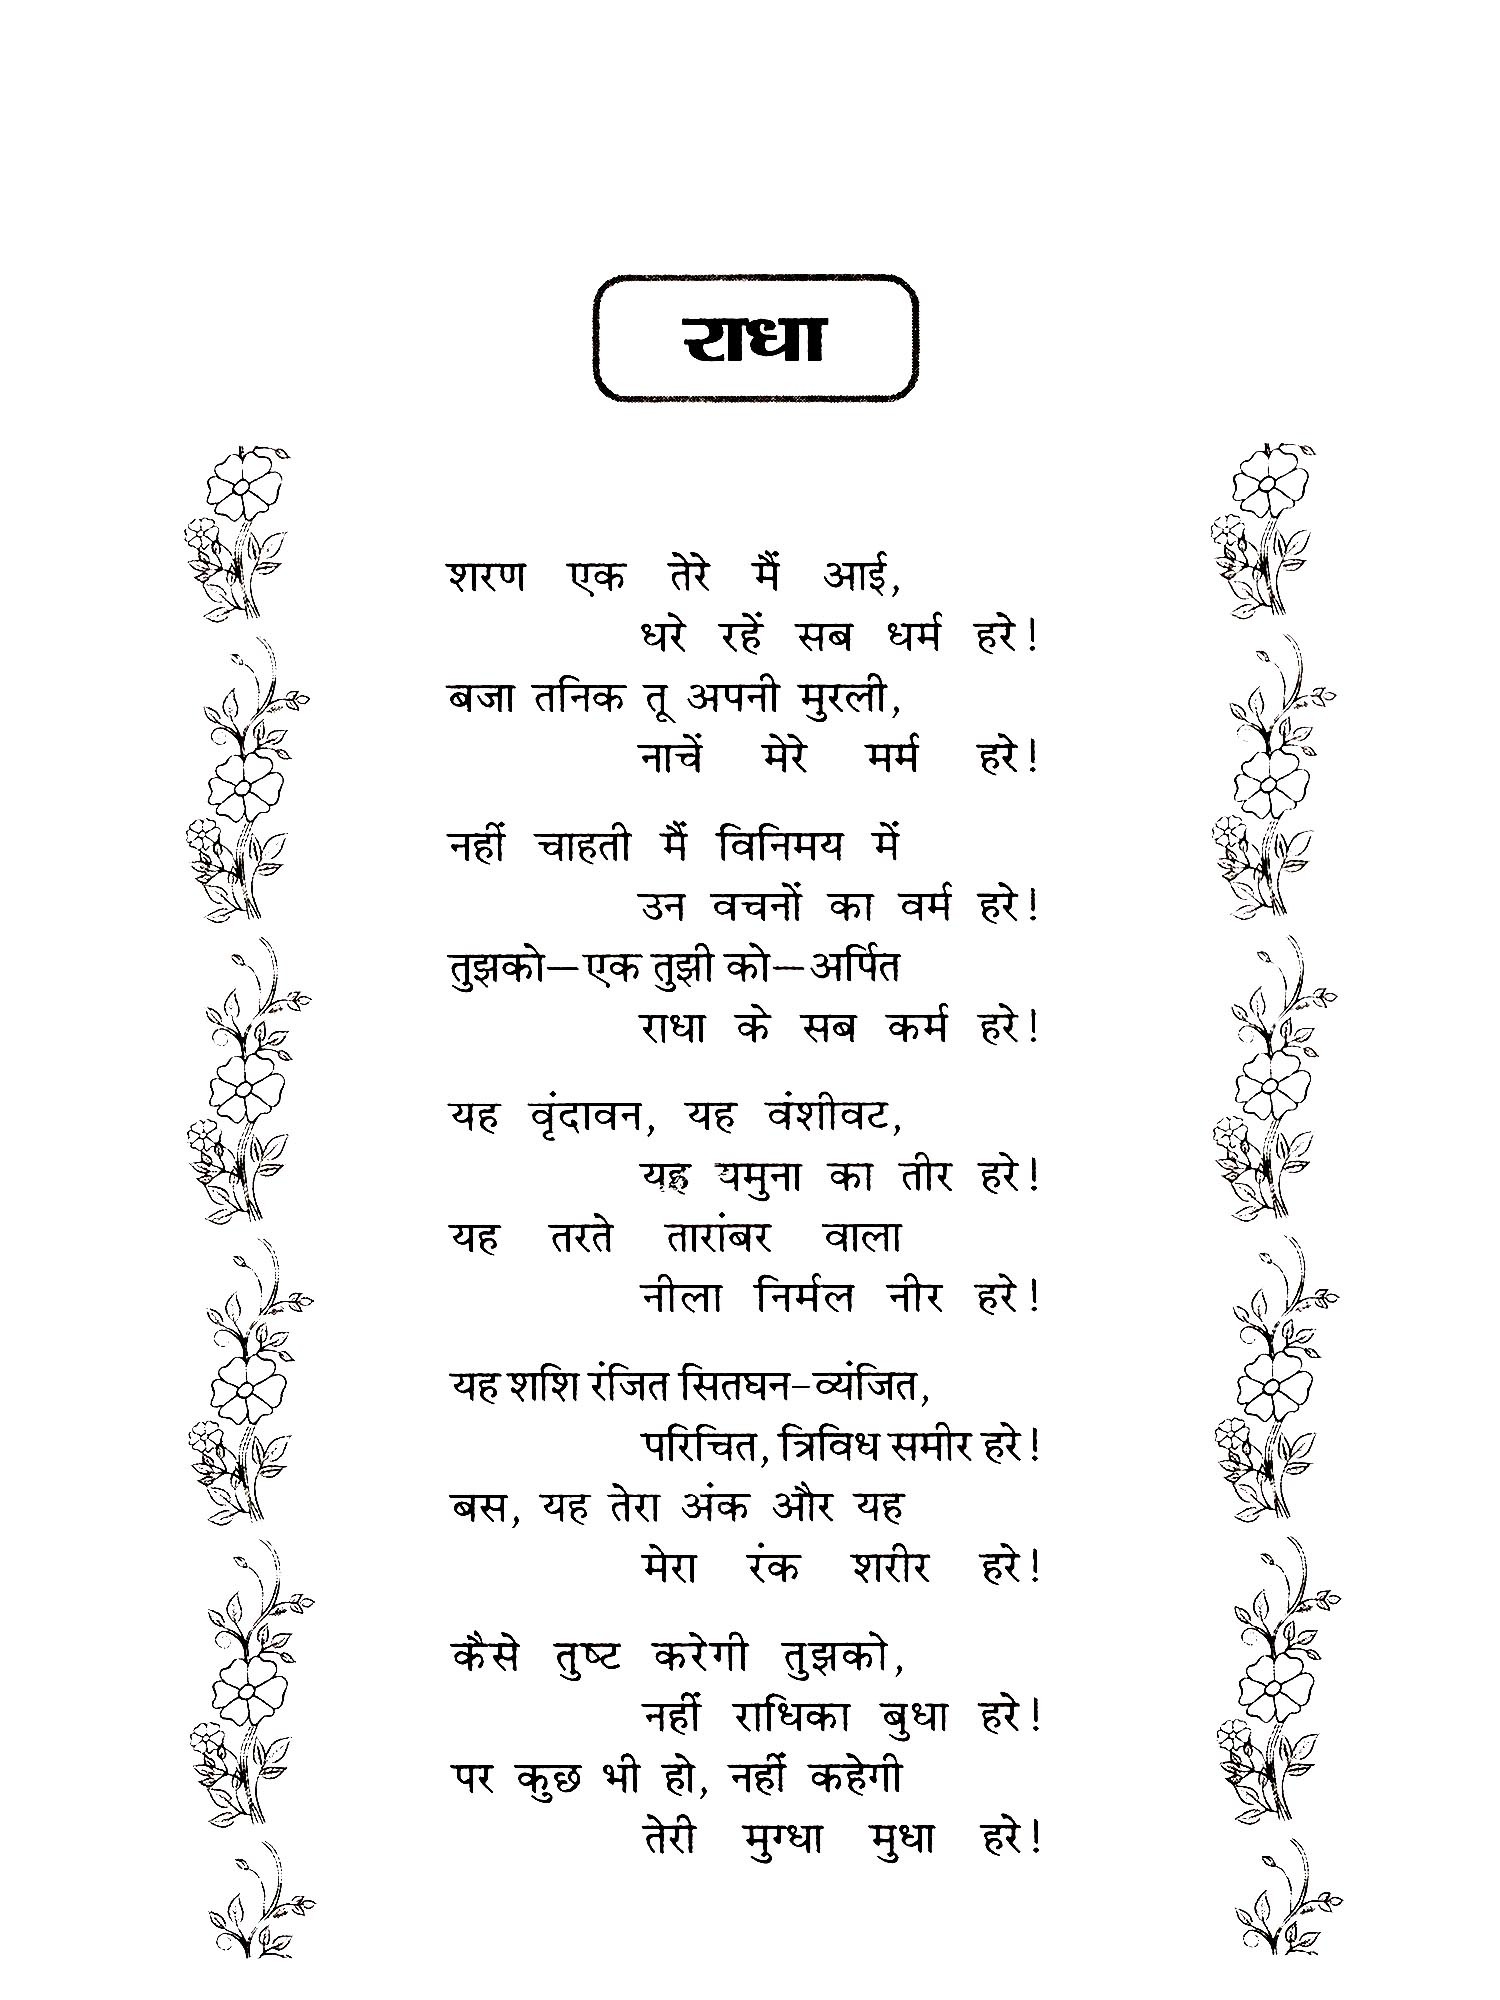 राधा
शरण एक तेरे मैं आई,
धरे रहें सब धर्म हरे!
बजा तनिक तू अपनी मुरली,
नाचें मेरे मर्म हरे!
नहीं चाहती मैं विनिमय में
उन वचनों का वर्म हरे!
तुझको—एक तुझी को—अर्पित
राधा के सब कर्म हरे!
यह वृंदावन, यह वंशीवट,
यह यमुना का तीर हरे!
यह तरते तारांबर वाला
नीला निर्मल नीर हरे!
यह शशि रंजित सितघन-व्यंजित,
परिचित, त्रिविध समीर हरे!
बस, यह तेरा अंक और यह
मेरा रंक शरीर हरे!
कैसे तुष्ट करेगी तुझको,
नहीं राधिका बुधा हरे!
पर कुछ भी हो, नहीं कहेगी
तेरी मुग्धा मुधा हरे!